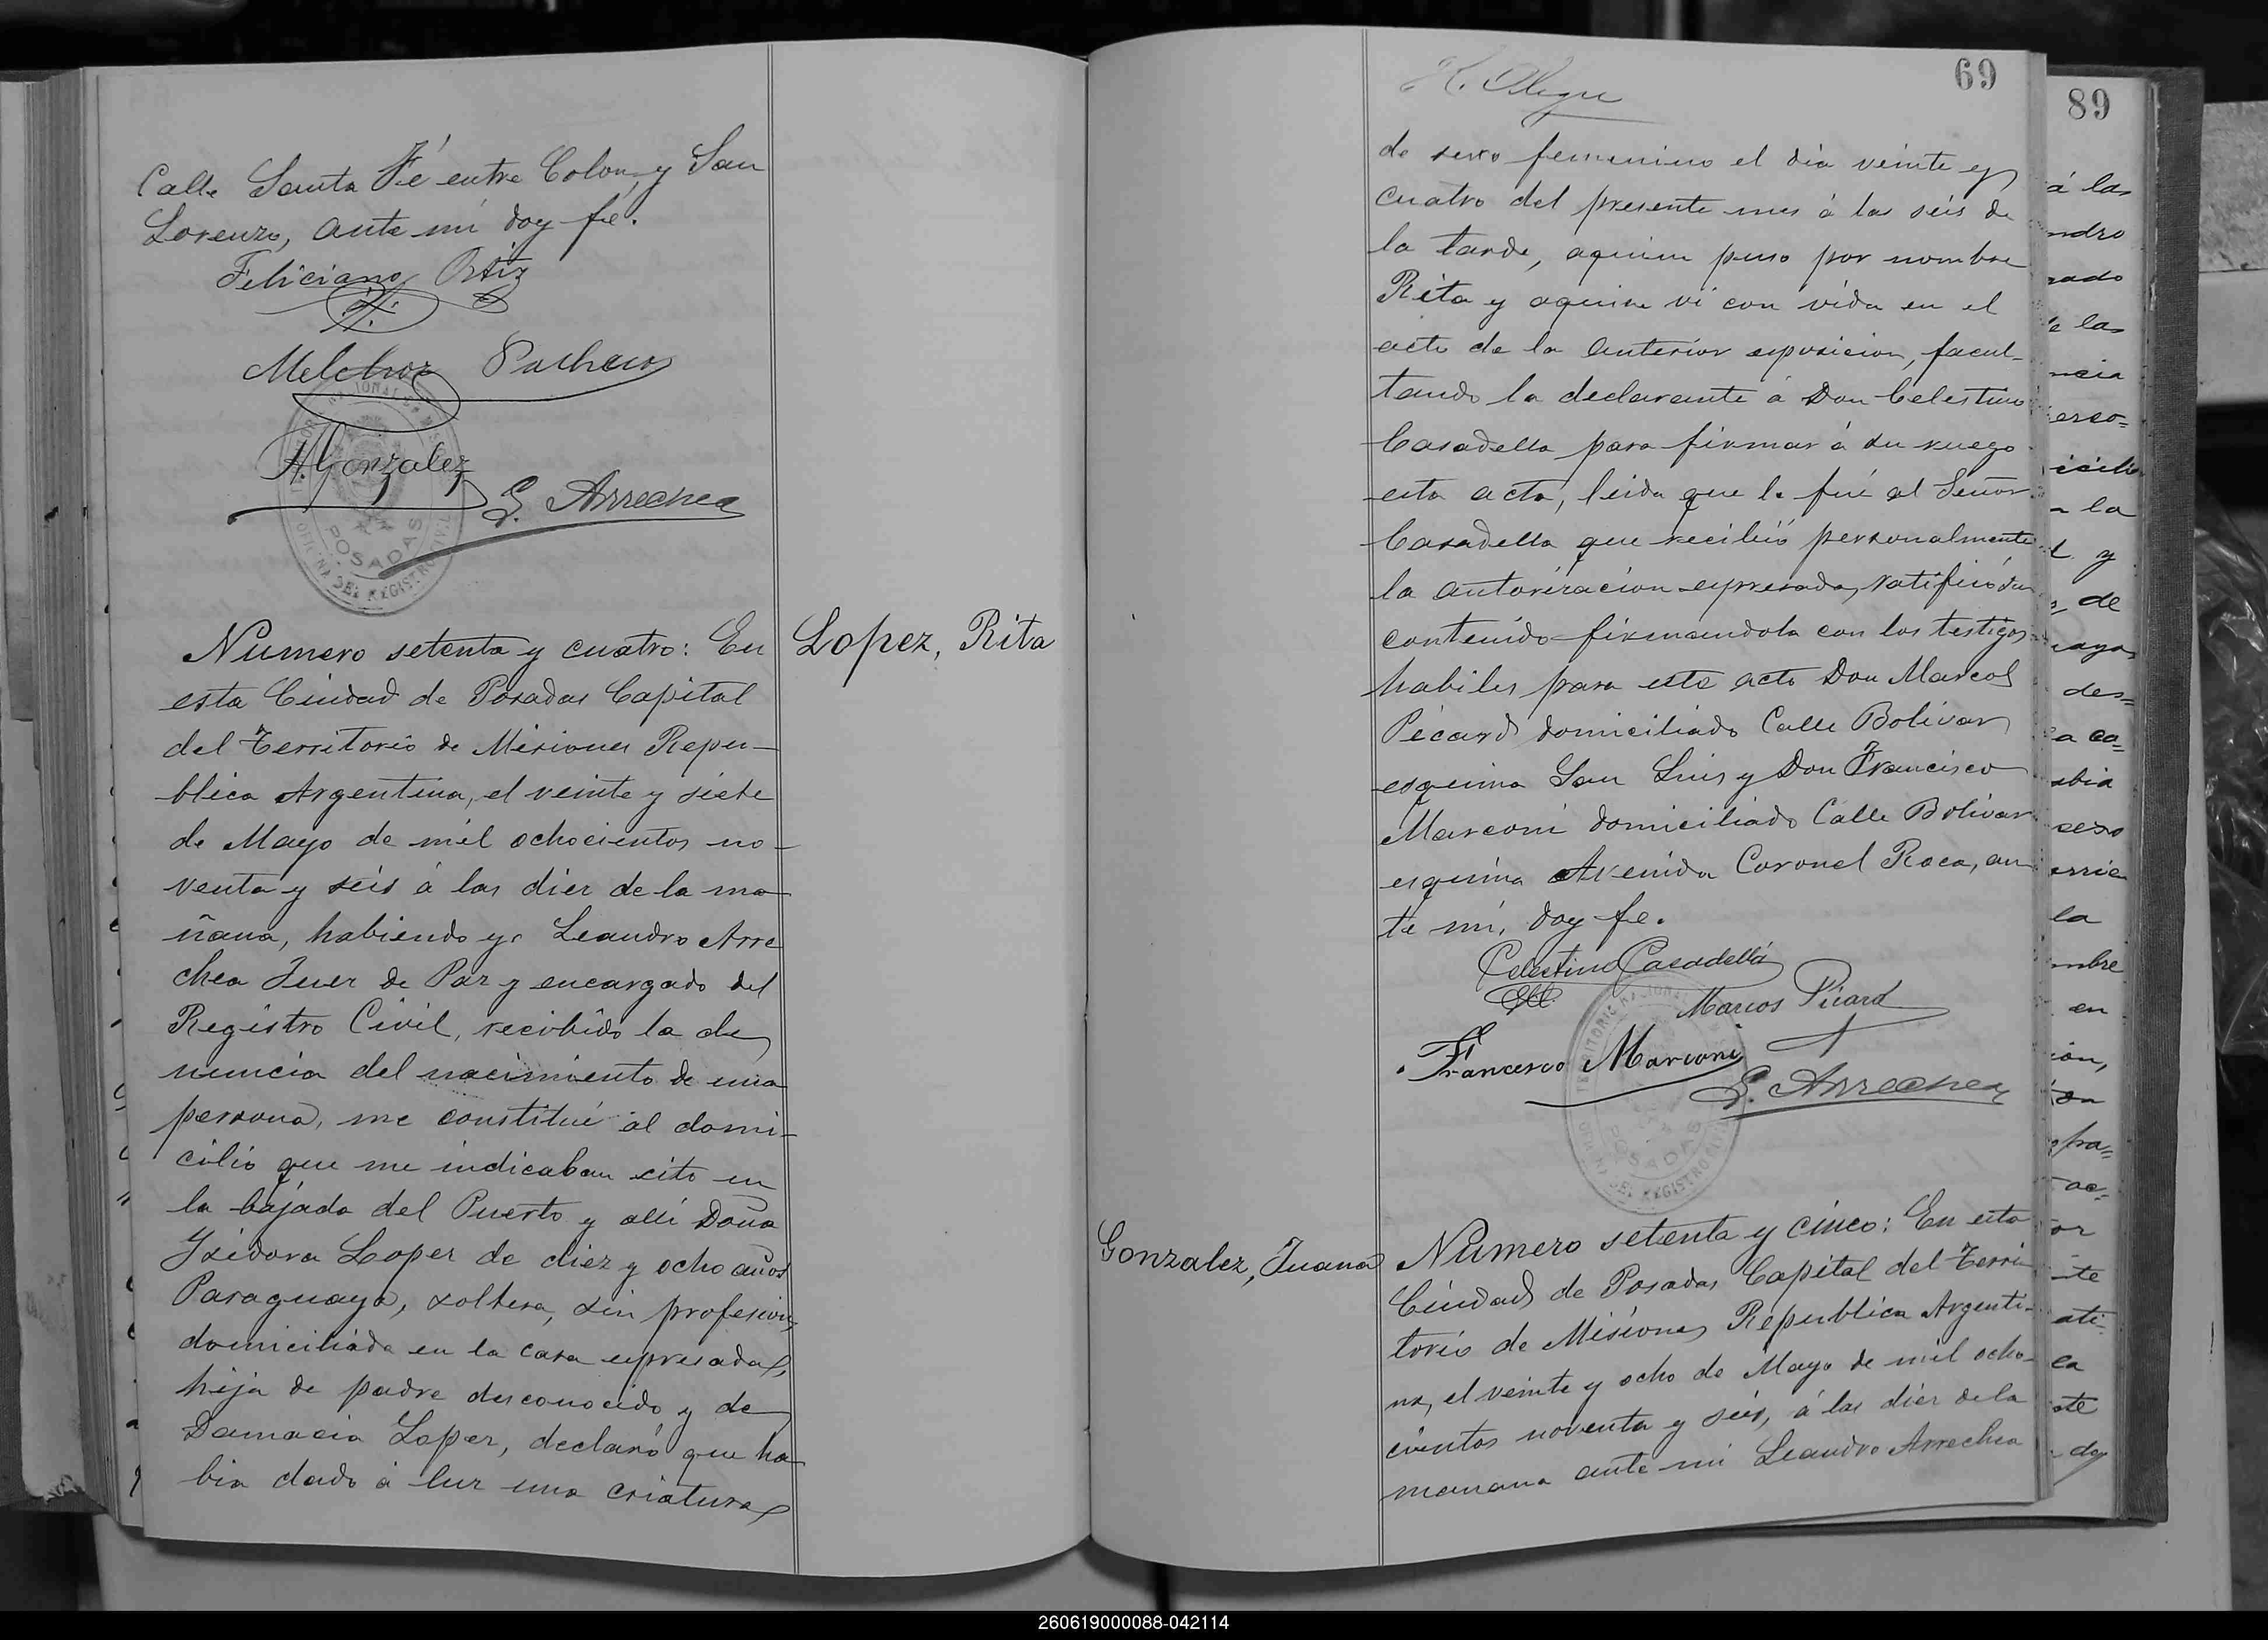 Calle Santa Fé entre Colon, y San
Lorenzo, ante mi doy fé.
Feliciano Ortiz
Melchor Pacheco
A. Gonzalez
L. Arrechea
POSADAS
OFICINA DEL REGISTRO CIVIL
Numero setenta y cuatro: En
esta Ciudad de Posadas Capital
del Territorio de Misiones Repu-
blica Argentina, el veinte y siete
de Mayo de mil ochocientos no-
venta y seis á las diez de la ma
ñana, habiendo yo Leandro Arre
chea Juez de Paz y encargado del
Registro Civil, recibido la de
nuncia del nacimiento de una
persona, me constitui al domi-
cilio que me indicaban sito en
la bajada del Puerto y alli Doña
Isidora Lopez de diez y ocho años
Paraguaya, soltera, sin profesion,
domiciliada en la casa expresada,
hija de padre desconocido y de
Damacia Lopez, declaró que ha-
bia dado á luz una criatura
Lopez, Rita
69
de sexo femenino el dia veinte y
cuatro del presente mes á las seis de
la tarde, aquien puso por nombre
Rita y aquien vi con vida en el
acto de la anterior esposicion, facul-
tando la declarante á Don Celestino
Casadella para firmar á su ruego
esta acta, leida que le fué al Señor
Casadella que recibió personalmente
la autorizacion expresada, ratificó su
contenido firmandola con los testigos
habiles para este acto Don Marcos
Pécard domiciliado Calle Bolivar
esquina San Luis y Don Francisco
Marconi domiciliado Calle Bolivar
esquina Avenida Coronel Roca, an
te mi, doy fe.
Celestino Casadellá
Marcos Picard
Francesco Marconi
L. Arrechea
POSADAS
OFICINA DEL REGISTRO CIVIL
Gonzalez, Juana
Numero setenta y cinco: En esta
Ciudad de Posadas Capital del Terri
torio de Misiones Republica Argenti-
na, el veinte y ocho de Mayo de mil ocho-
cientos noventa y seis, á las diez de la
manana ante mi Leandro Arrechea
89
á las
ndro
gado
e las
ncia
erso=
icilio
a la
y
de
uaya
des=
a co=
abia
sexo
la
mbre
en
ion,
pra=
ac=
or
te
ati-
ea
ste
doy
260619000088-042114